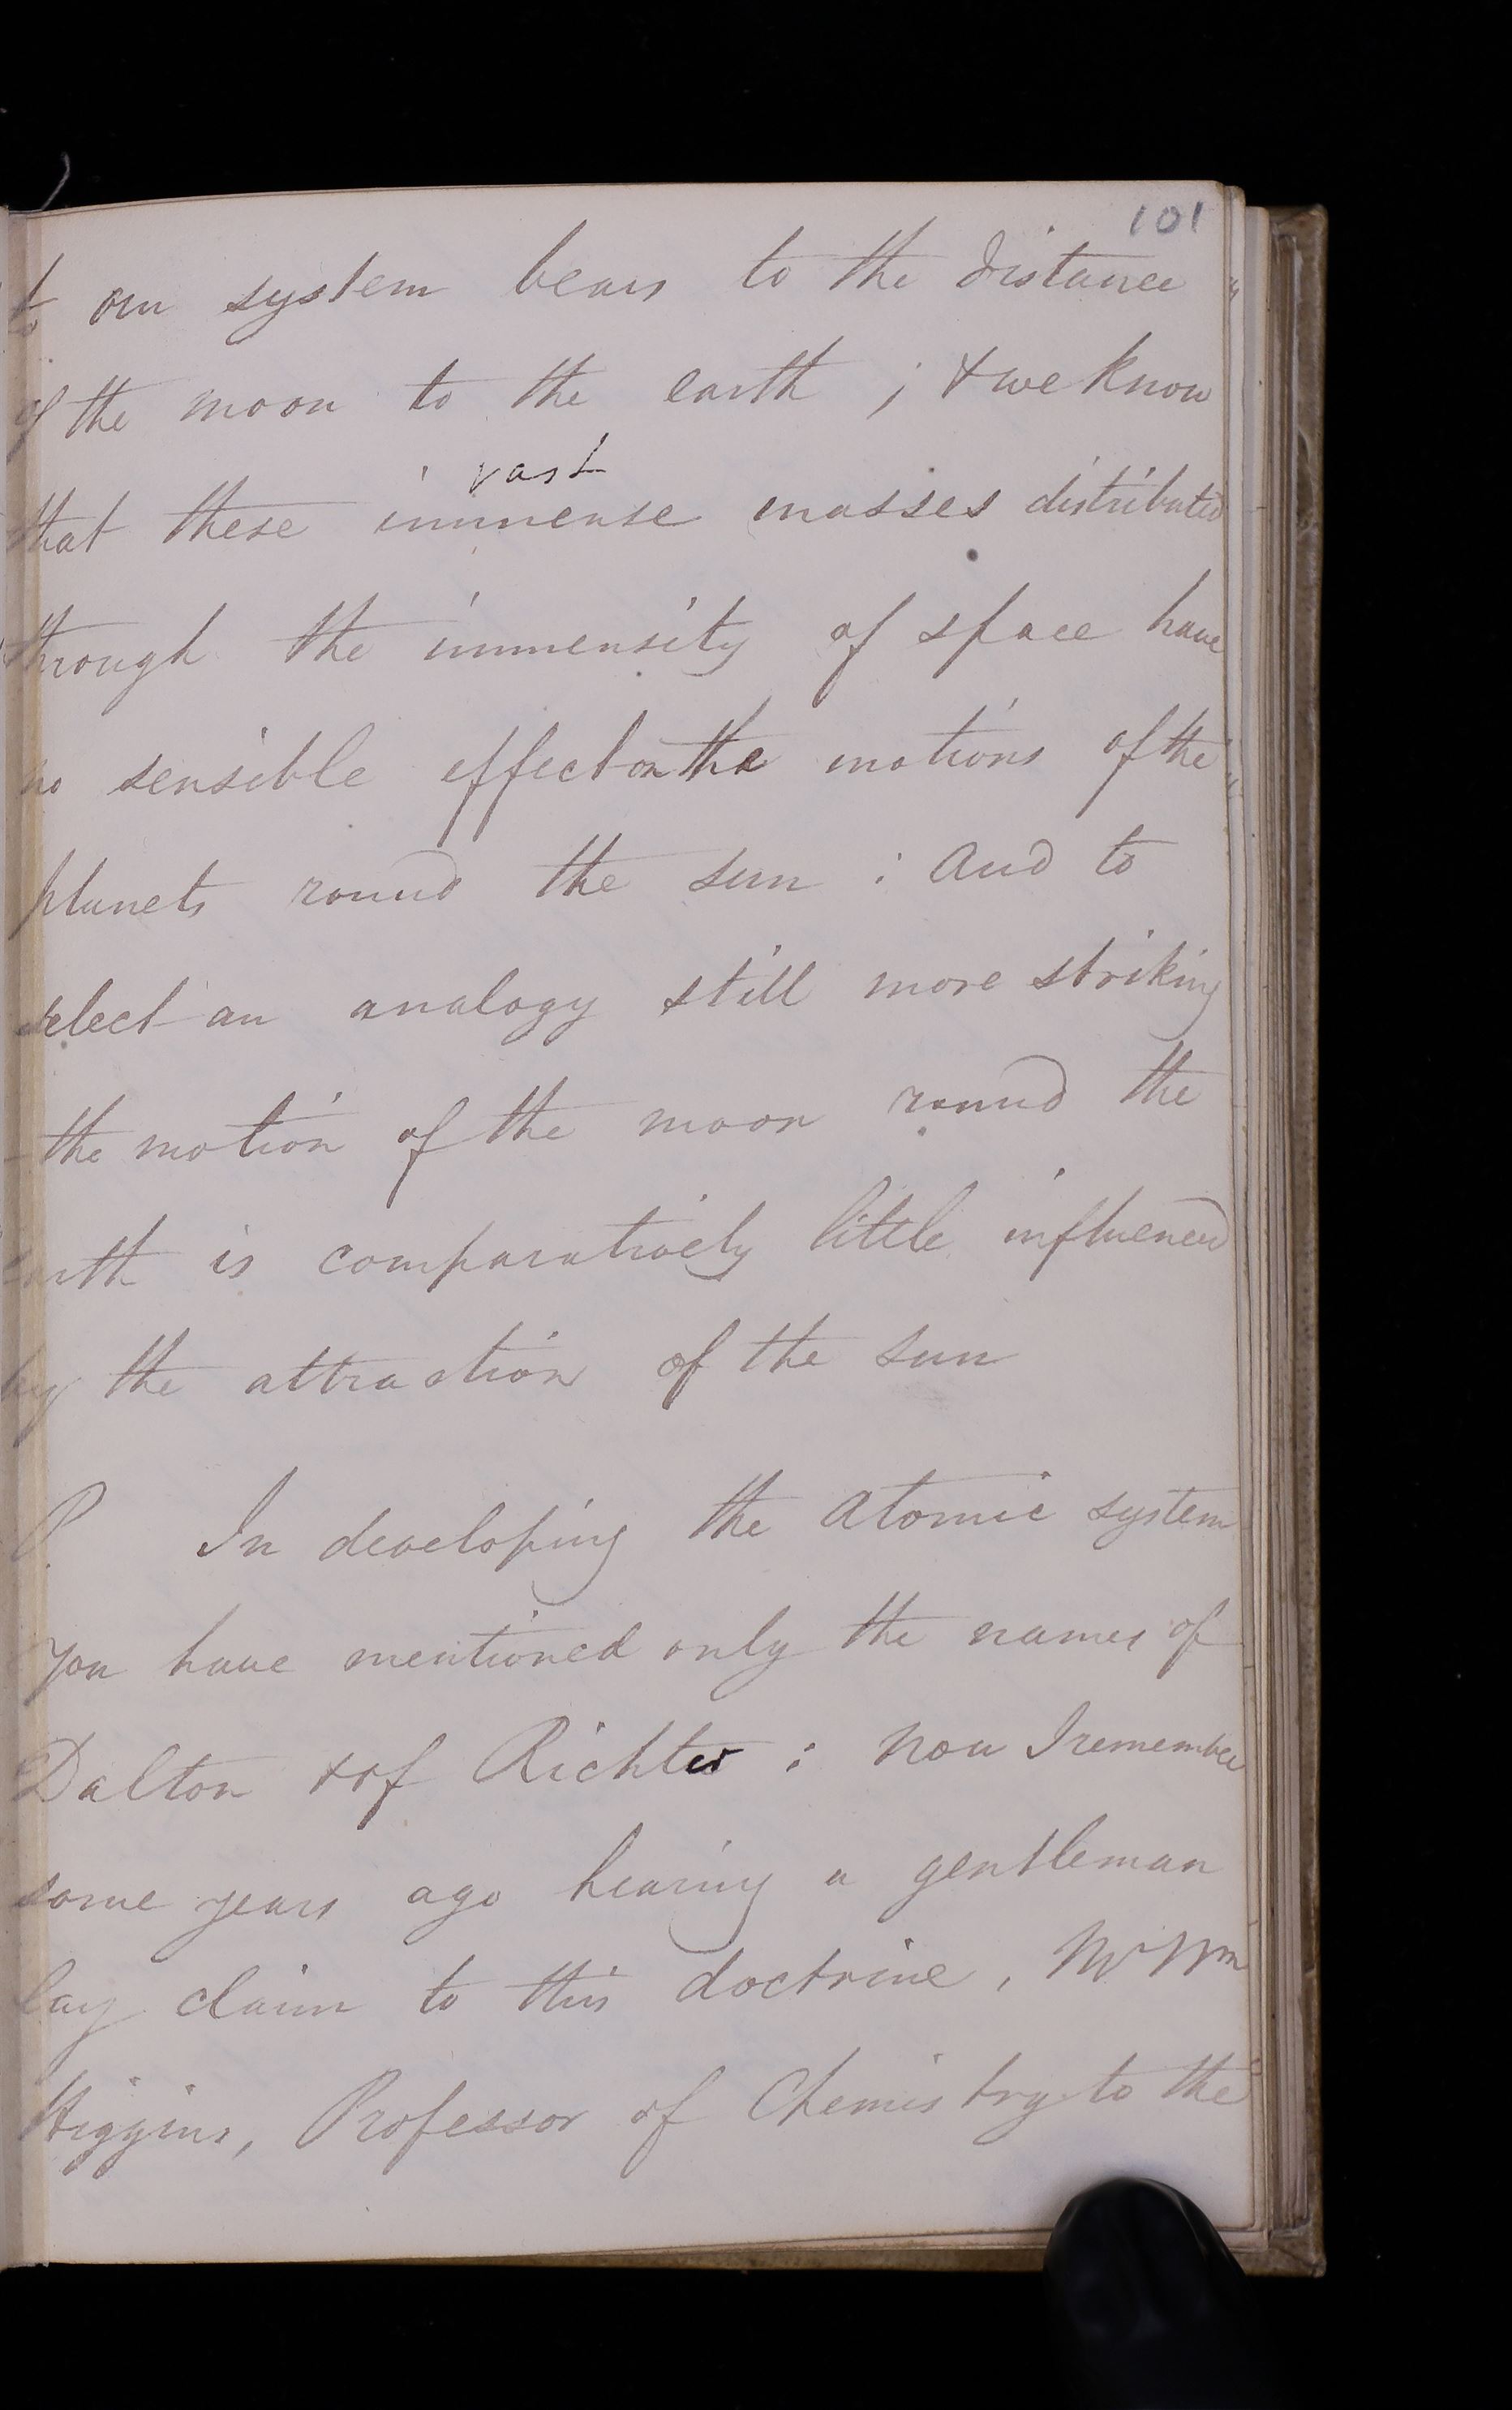 101
to our system bears to the distance
of the moon to the earth ; & we know
vast
that these immense masses distributed
through the immensity of space have
no sensible effect on the motions of the
planets round the sun : And to
select an analogy still more striking
the motion of the moon round the
earth is comparatively little influenced
by the attraction of the sun
P. In developing the atomic system
you have mentioned only the names of
Dalton & of Richter : now I remember
some years ago hearing a gentleman
lay claim to this doctrine, Mr Wm
Higgins, Professor of Chemistry to the